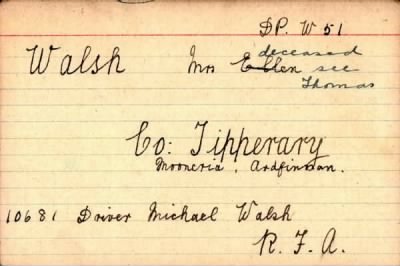 DP. W 51
Walsh Mrs Ellen deceased see Thomas
Co: Tipperary
Mooneria, Ardfinnan.
10681 Driver Michael Walsh
R. F. A.